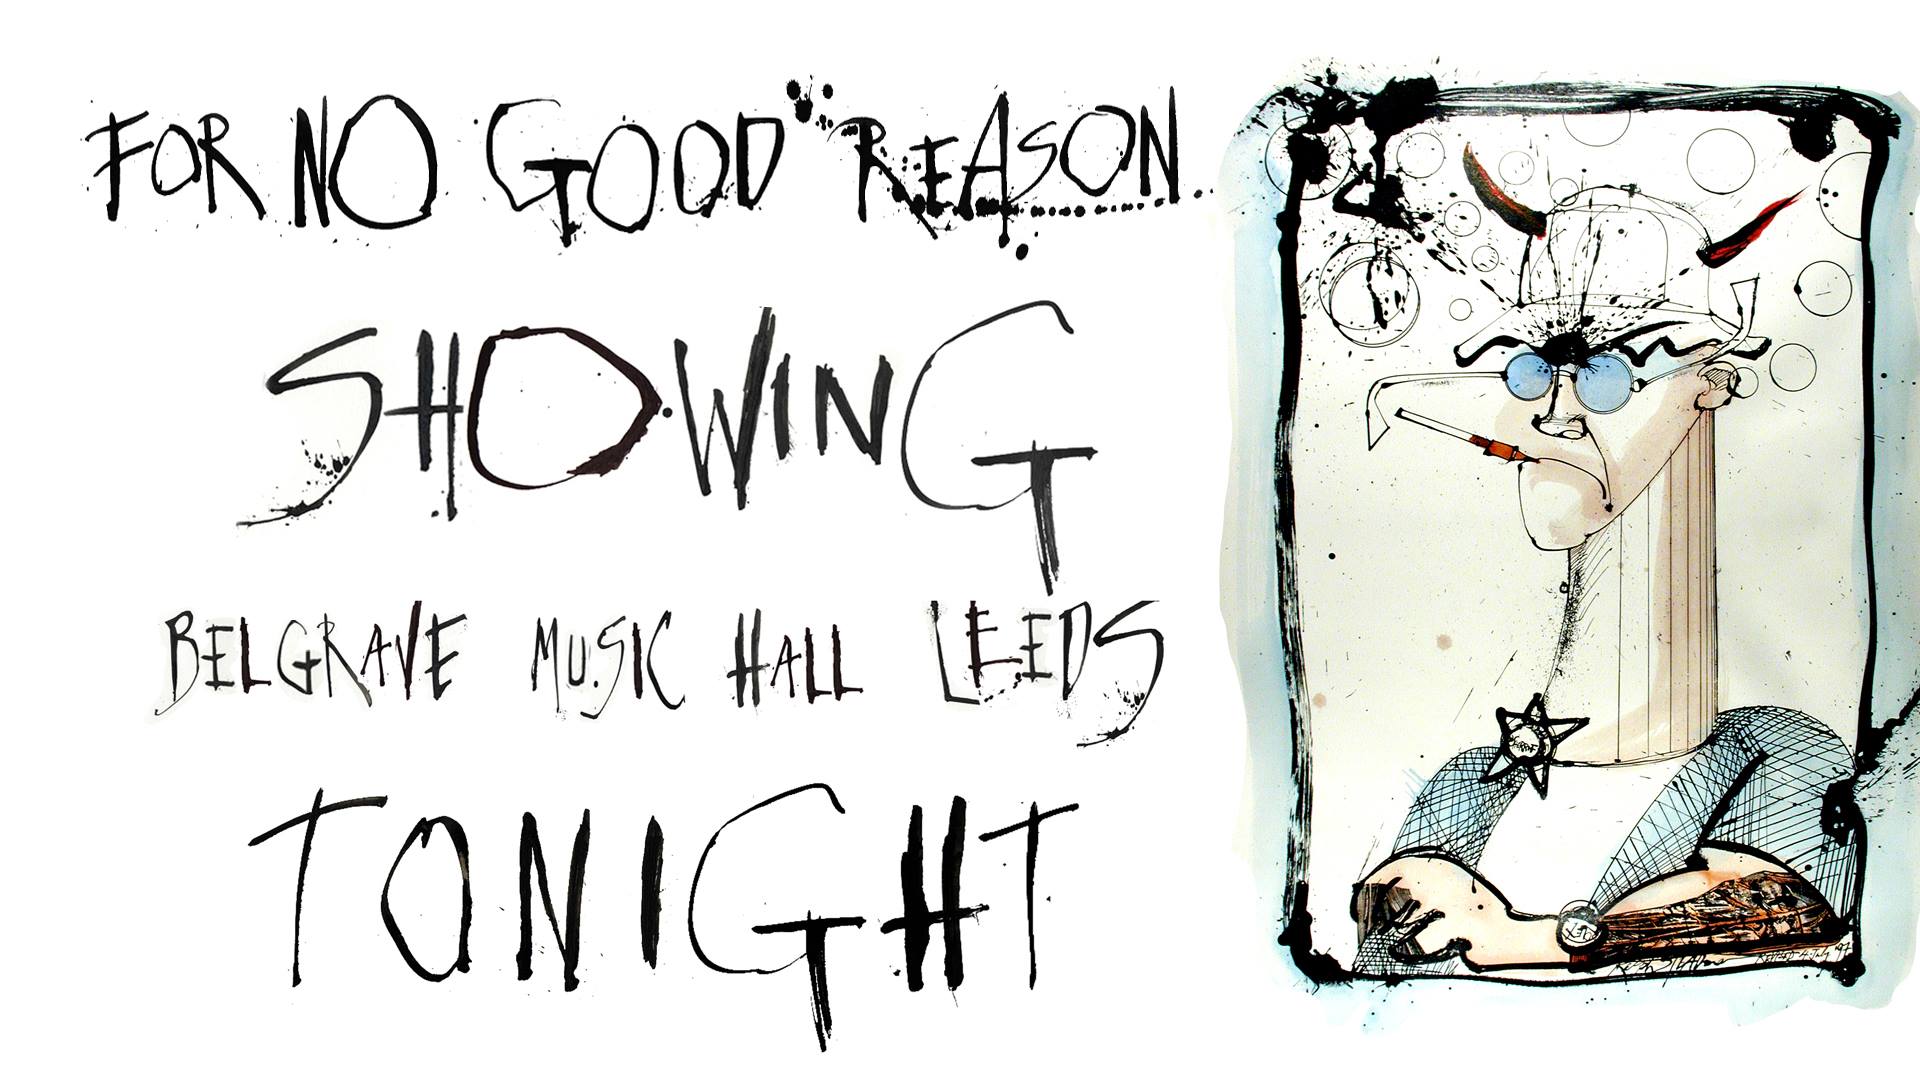 FOR NO GOOD REASON..
SHOWING
BELGRAVE MUSIC HALL LEEDS
TONIGHT